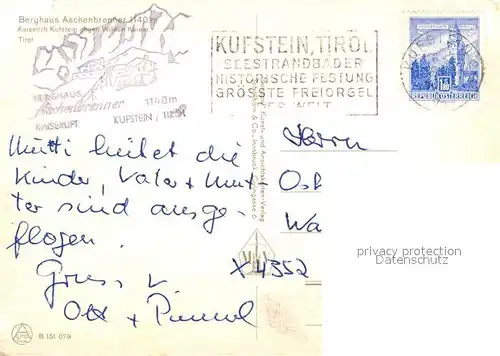 Berghaus Aschenbrenner 1140 m
Kaiserlift Kufstein gegen Wilden Kaiser
Tirol
BERGHAUS
Aschenbrenner
1140m
KAISERLIFT KUFSTEIN / TIROL
KUFSTEIN, TIROL
SEESTRANDBÄDER
HISTORISCHE FESTUNG
GRÖSSTE FREIORGEL
DER WELT
REPUBLIK ÖSTERREICH
Mutti hütet die
Kinder, Vater + Mut-
ter sind ausge-
flogen.
Gruss v
Ott +
Herrn
Ost
Wa
X 4352
privacy protection
Datenschutz
B 151 079